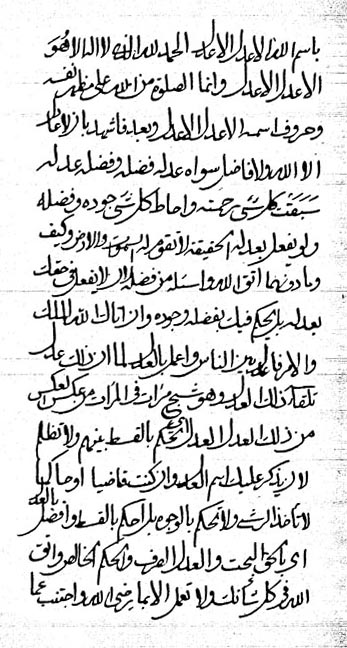 باسم الله الاعدل الاعدل الحمد لله الذي لا اله الا هو
الاعدل الاعدل وانما الصلوة من الله على مظهر نفسه
وحروف اسمه الاعدل الاعدل وبعد فاشهد بان لا عادل
الا الله ولا فاضل سواه عدله فضله وفضله عدله
سبقت كل شئ رحمته واحاط كل شئ جوده وفضله
ولو يفعل بعدله الحقيقة لا تقوم له السموات والارض وكيف
وما دونهما اتق الله واسئله من فضله لان لا يفعل في حقك
بعدله بل يحكم فيك بفضله وجوده وان اتاك الله الملك
والامر فاعدل بين الناس واعمل بالعدل لما ان ذلك عدل
تلقاء ذلك العدل وهو شبح مرات في المرات من عكس العكس
من ذلك العدل العدل اي احكم بالقسط بينهم ولا تظلم
لان يذكر عليك اسم العدل وان كنت قاضيا او حاكما
لا تاخذ الرشى ولا تحكم بالوجوه بل احكم بالقسط وافصل بالعدل
اي بالحق البحت والعدل الصرف والحكم الخالص واتق
الله في كل شأنك ولا تعمل الا بما رضى الله واجتنب عما